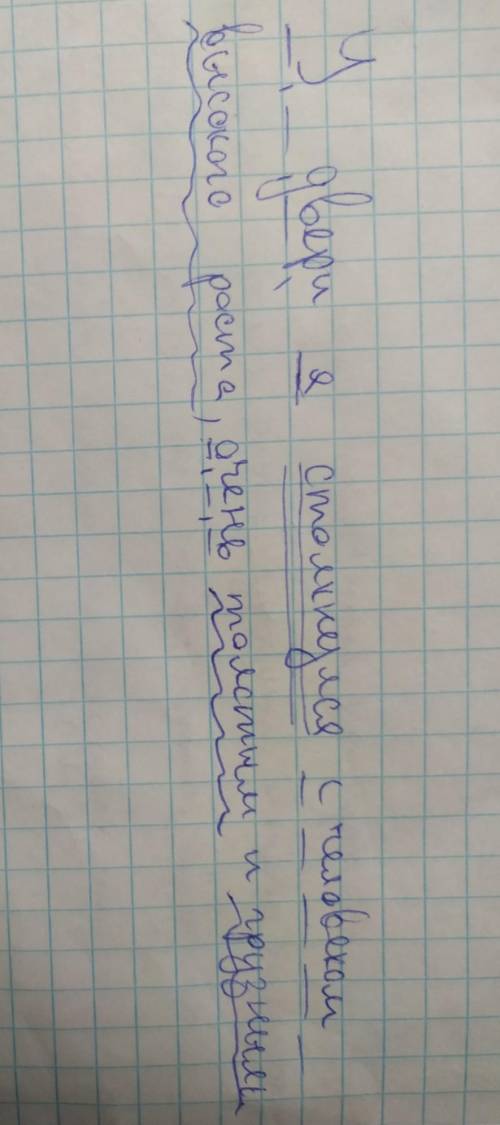 У двери я столкнулся с человеком
высокого роста, очень толстым и грузным